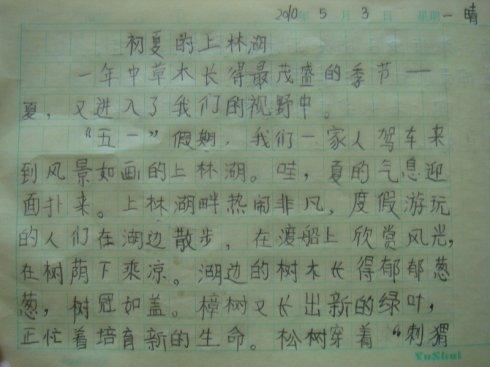 2010年 5月 3日 星期一 晴
初夏的上林湖
一年中草木长得最茂盛的季节——
夏，又进入了我们的视野中。
“五一”假期，我们一家人驾车来
到风景如画的上林湖。哇，夏的气息迎
面扑来。上林湖畔热闹非凡，度假游玩
的人们在湖边散步，在渡船上欣赏风光，
在树荫下乘凉。湖边的树木长得郁郁葱
葱，树冠如盖。樟树又长出新的绿叶，
正忙着培育新的生命。松树穿着“刺猬
YuShui